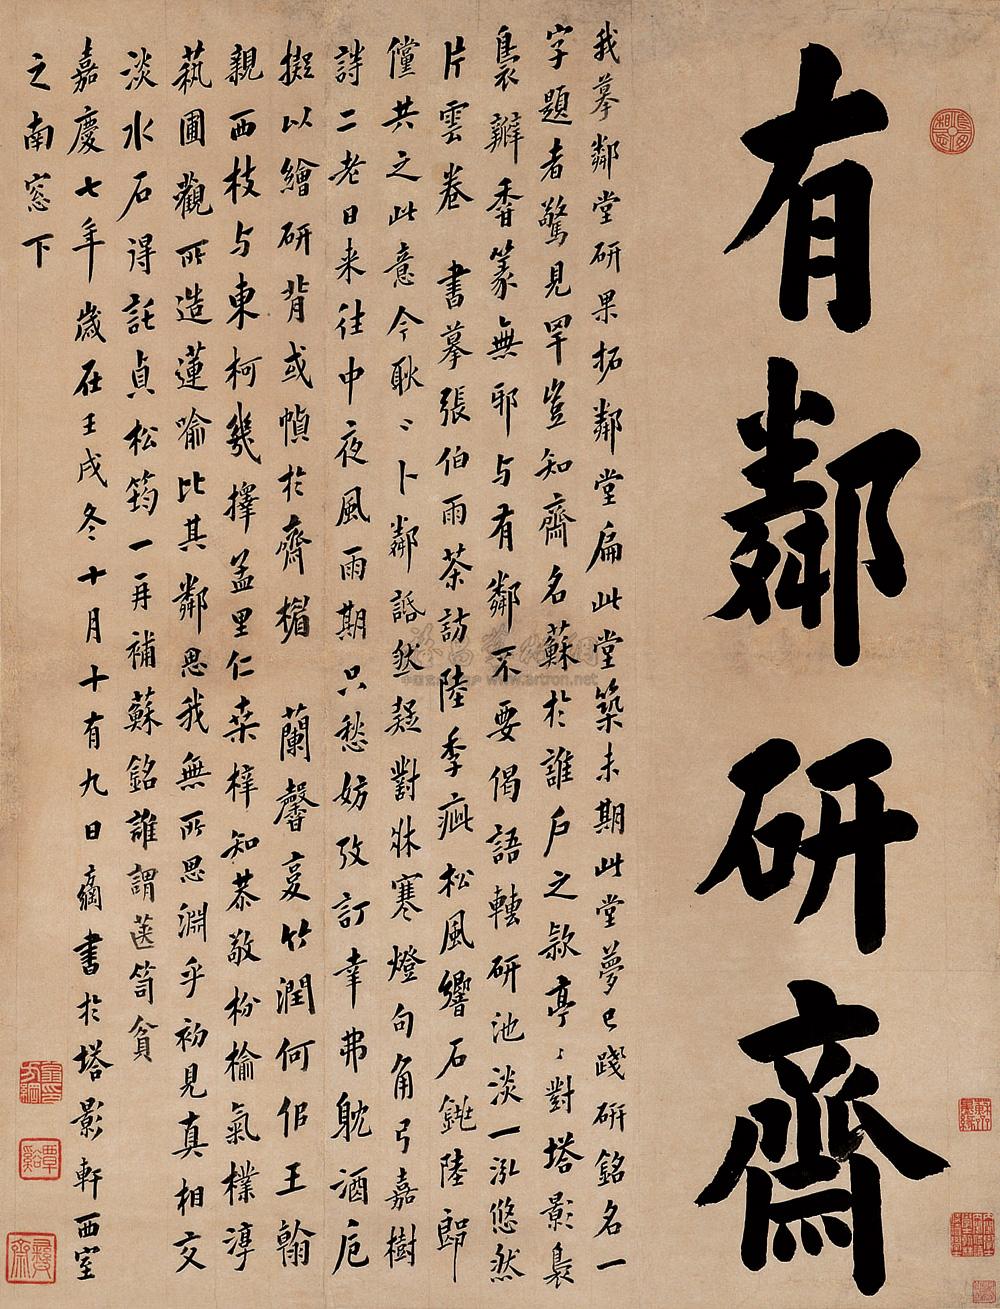 有鄰研齋
我摹鄰堂研果拓鄰堂扁此堂築未期此堂夢已踐研銘名一
字題者驚見罕豈知齋名蘇於誰戶之歘亭〻對塔影裊
裊辦香篆無邪与有鄰不要偈語轉研池淡一泓悠然
片雲卷 書摹張伯雨茶訪陸季疵松風響石銚陸郎
僮共之此意今耿〻卜鄰話然疑對牀寒燈句角弓嘉樹
詩二老日来往中夜風雨期只愁妨攷訂幸弗躭酒巵
擬以繪研背或幀於齋楣 蘭馨夏竹潤何伯王翰
親西枝与東柯幾擇孟里仁桒梓知恭敬枌榆氣樸淳
蓺圃觀所造蓮喻比其鄰思我無所思淵乎初見真相交
淡水石得託貞松筠一再補蘇銘誰謂篋笥貧
嘉慶七年歲在壬戌冬十月十有九日 書於塔影軒西室
之南窓下
www.artron.net